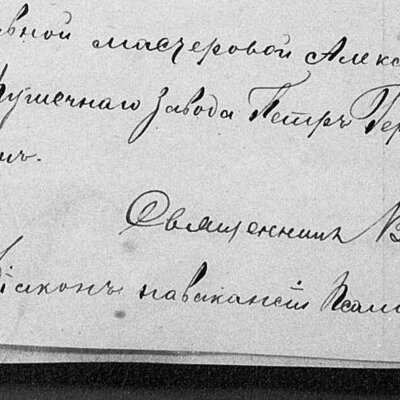 вной мастеровой Алекс
Пушечнаго Завода Петръ Гер
нъ.
Священникъ В
Діаконъ на вакансіи Псал